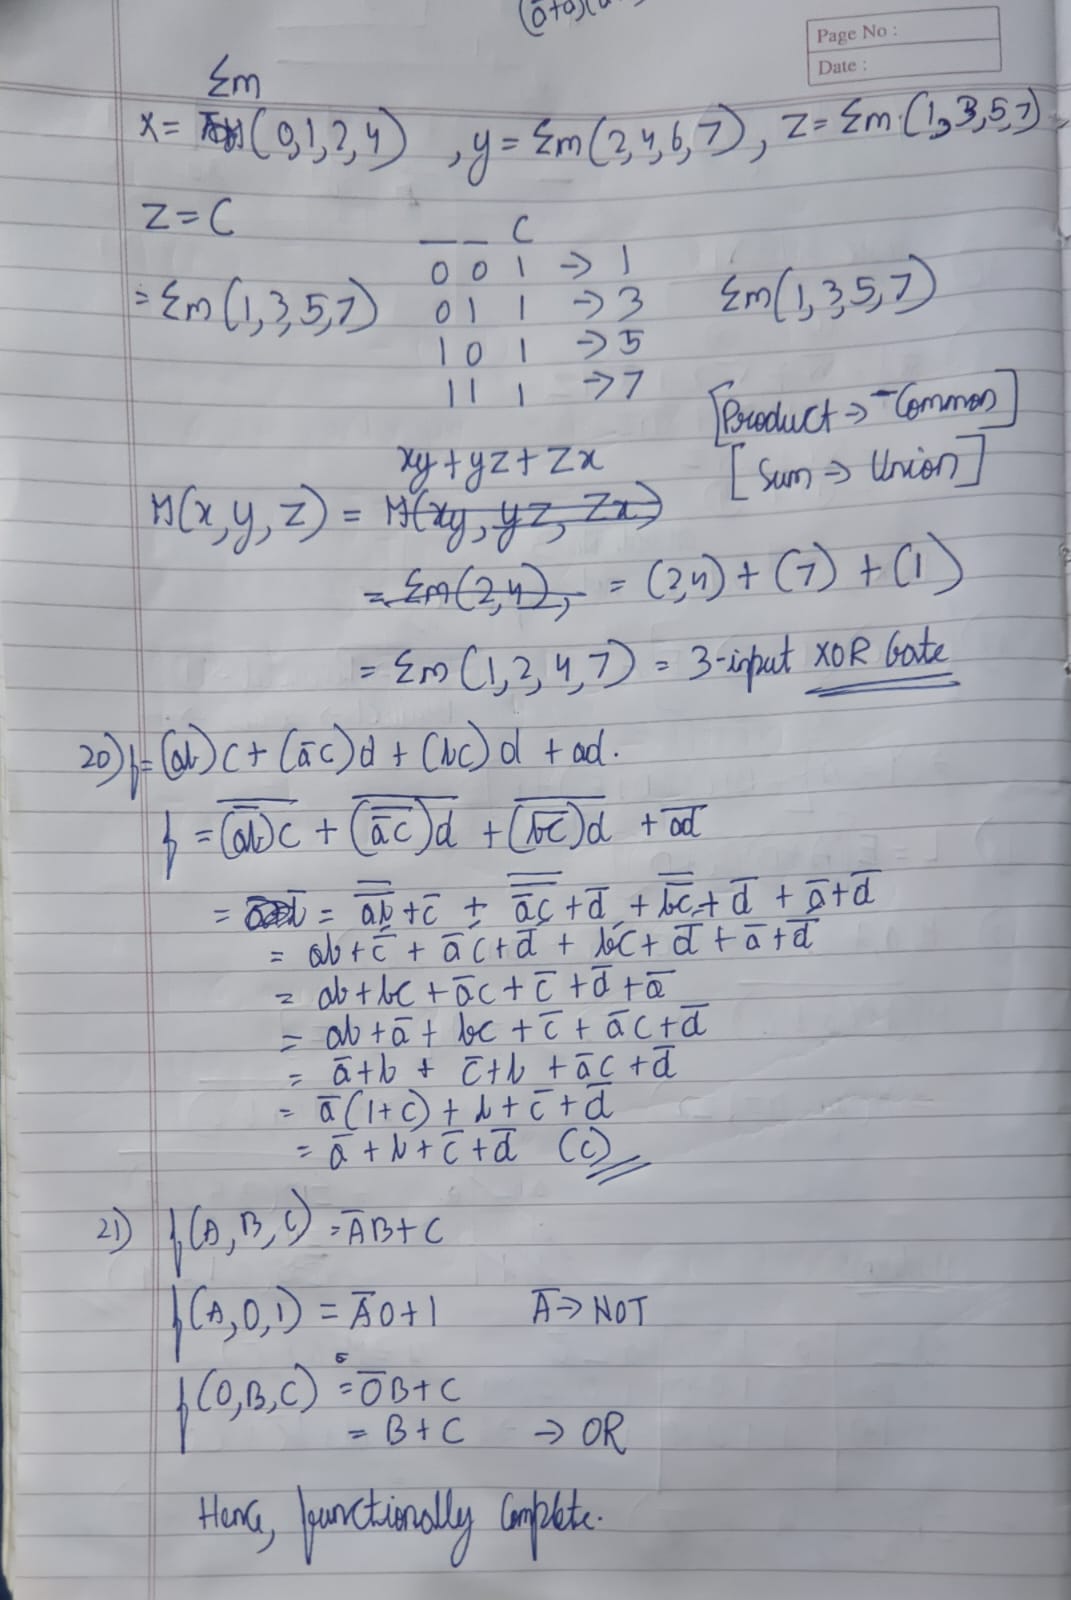 (ā+a)(a
Page No :
Date :
Σm
x = (0,1,2,4) , y = Σm(2,4,6,7), z = Σm(1,3,5,7)
z = C
_ _ C
0 0 1 → 1
= Σm(1,3,5,7) 0 1 1 → 3 Σm(1,3,5,7)
1 0 1 → 5
1 1 1 → 7
[Product → Common]
xy + yz + zx
[Sum ⇒ Union]
M(x,y,z) = M(xy, yz, zx)
= Σm(2,4), = (2,4) + (7) + (1)
= Σm(1,2,4,7) = 3-input XOR Gate
20) f = (ab)c + (āc)d + (bc)d + ad.
f = \overline{(\overline{ab})c} + \overline{(\overline{āc})d} + \overline{(\overline{bc})d} + \overline{ad}
= = \overline{\overline{ab}} + c̄ + \overline{\overline{āc}} + d̄ + \overline{\overline{bc}} + d̄ + ā + d̄
= ab + c̄ + āc + d̄ + bc + d̄ + ā + d̄
= ab + bc + āc + c̄ + d̄ + ā
= ab + ā + bc + c̄ + āc + d̄
= ā + b + c̄ + b + āc + d̄
= ā(1+c) + b + c̄ + d̄
= ā + b + c̄ + d̄ (c)
21) f(A,B,C) = ĀB + C
f(A,0,1) = Ā0 + 1 Ā → NOT
f(0,B,C) = 0̄B + C
= B + C → OR
Hence, functionally Complete.